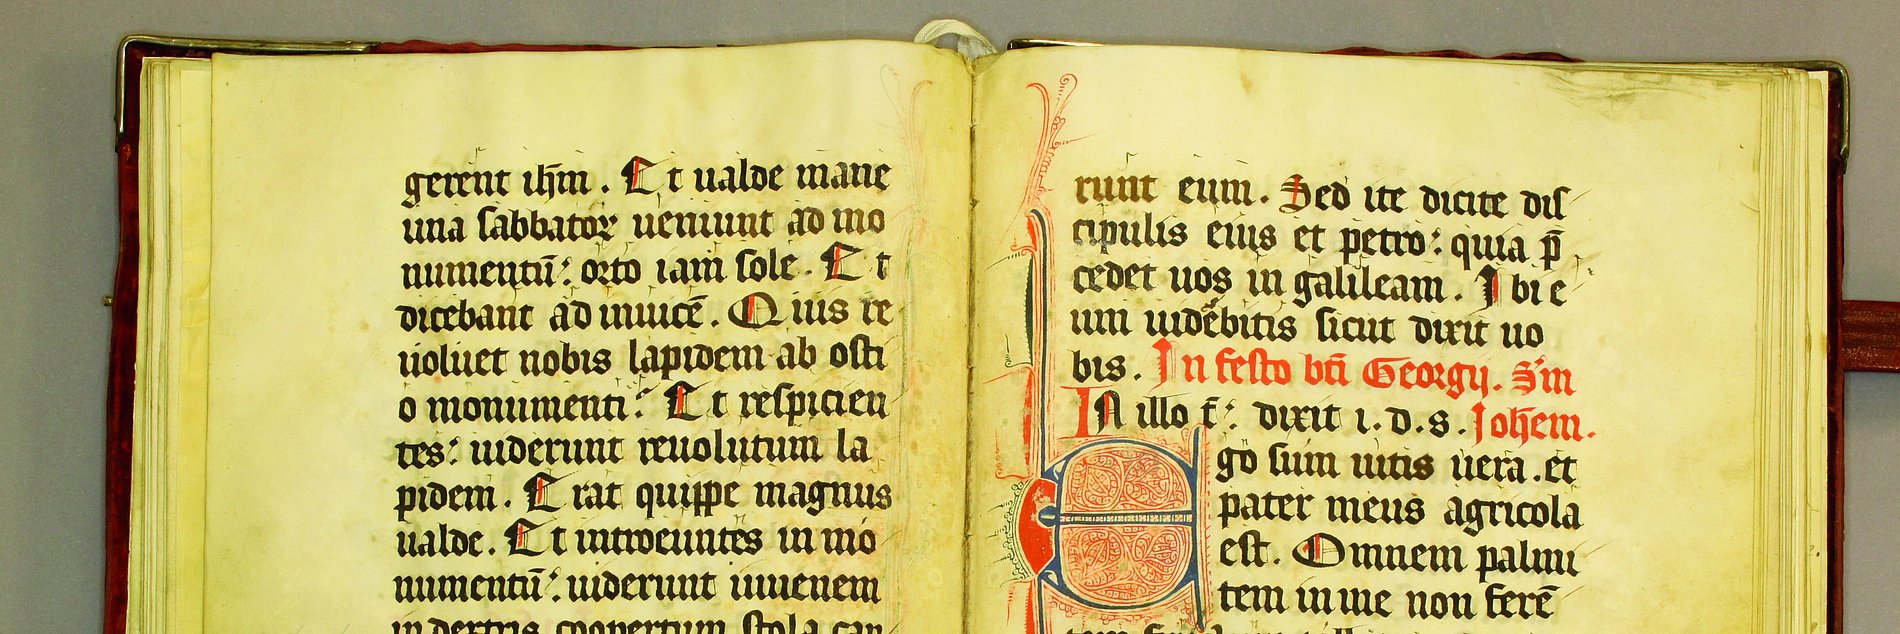 gerent ih̄m . Et ualde mane
una sabbatoꝝ ueniunt ad mo
numentū : orto iam sole . Et
dicebant ad inuicē . Quis re
uoluet nobis lapidem ab osti
o monumenti : Et respicien
tes : uiderunt reuolutum la
pidem . Erat quippe magnus
ualde . Et introeuntes in mo
numentū : uiderunt iuuenem
in dextris coopertum stola can
runt eum . Sed ite dicite dis
cipulis eius et petro : quia p̄
cedet uos in galileam . Ibi e
um uidebitis sicut dixit uo
bis . In festo bt̄i Georgij . S'm
IN illo t̄ : dixit i . d . s . Joh̄em .
Ego sum uitis uera . et
pater meus agricola
est . Omnem palmi
tem in me non ferē